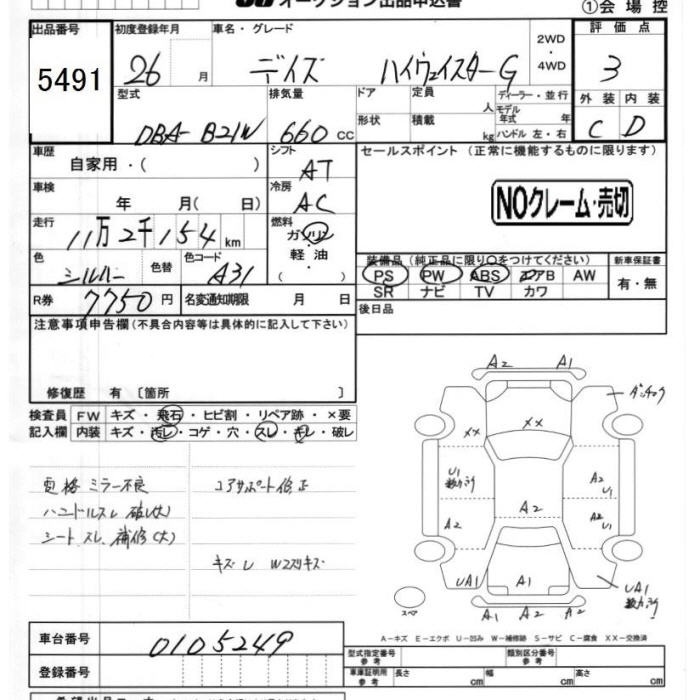 オークション出品申込書
①会場控
出品番号 初度登録年月 車名・グレード 2WD・4WD 評価点
5491 26 月 デイズ ハイウェイスターG 3
型式 排気量 ドア 定員 人 ディーラー・並行 外装 内装
DBA-B21W 660 CC 形状 積載 kg モデル年式 年 ハンドル 左・右 C D
車歴 シフト セールスポイント(正常に機能するものに限ります)
自家用・( ) AT
車検 冷房
年 月( 日) AC NOクレーム・売切
走行 燃料
11万2千154km ガソリン
軽油
( )
色 色替 色コード 装備品(純正品に限り○をつけてください) 新車保証書
シルバー A31 PS PW ABS エアB AW 有・無
R券 7750円 名変通知期限 月 日 SR ナビ TV カワ
注意事項申告欄(不具合内容等は具体的に記入して下さい) 後日品
修復歴 有〔箇所 〕
検査員 FW キズ・飛石・ヒビ割・リペア跡・×要
記入欄 内装 キズ・汚レ・コゲ・穴・スレ・キレ・破レ
電格ミラー不良 コアサポート修正
ハンドルスレ 破レ(大)
シートスレ、補修(大)
キズレ W2スリキズ
A2 A1
XX XX
U1
A2 U1
A2
A2 A2 U1
UA1 A1 UA1
スペア A1 A2 A2
A-キズ E-エクボ U-凹み W-補修跡 S-サビ C-腐食 XX-交換済
車台番号 0105249
型式指定番号 参考 類別区分番号 参考
登録番号 車庫証明用 参考 長さ cm 幅 cm 高さ cm